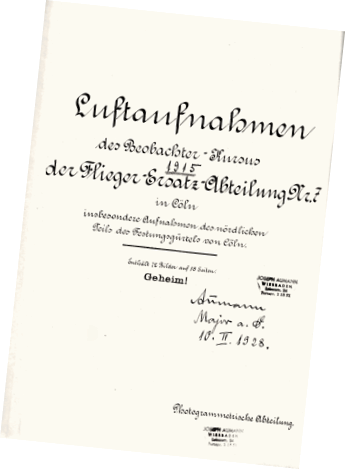 Luftaufnahmen
des Beobachter-Kursus
1915
der Flieger-Ersatz-Abteilung Nr. 7
in Cöln
insbesondere Aufnahmen des nördlichen
Teils des Festungsgürtels von Cöln.
Enthält 72 Bilder auf 18 Seiten.
Geheim!
JOSEPH AUMANN
WIESBADEN
Aumann
Major a. D.
10. II. 1928.
Photogrammetrische Abteilung.
JOSEPH AUMANN
WIESBADEN